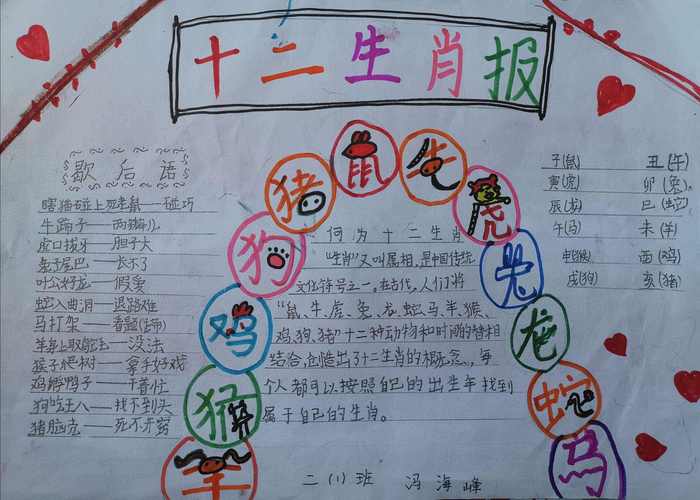 十二生肖报
歇后语
瞎猫碰上死老鼠——碰巧
牛蹄子——两瓣儿
虎口拔牙——胆子大
兔子尾巴——长不了
叶公好龙——假爱
蛇入曲洞——退路难
马打架——看题(蹄)
羊身上取鸵毛——没法
猴子爬树——拿手好戏
鸡孵鸭子——干着忙
狗咬王八——找不到头
猪脑壳——死不开窍
羊
猴
鸡
狗
猪
鼠
牛
虎
兔
龙
蛇
马
何为十二生肖
“生肖”又叫属相,是中国传统
文化符号之一。在古代,人们将
“鼠、牛、虎、兔、龙、蛇、马、羊、猴、
鸡、狗、猪”十二种动物和时间的替相
结合,创造出了十二生肖的概念。每
个人都可以按照自己的出生年找到
属于自己的生肖。
子(鼠) 丑(牛)
寅(虎) 卯(兔)
辰(龙) 巳(蛇)
午(马) 未(羊)
申(猴) 酉(鸡)
戌(狗) 亥(猪)
二(1)班 冯海峰